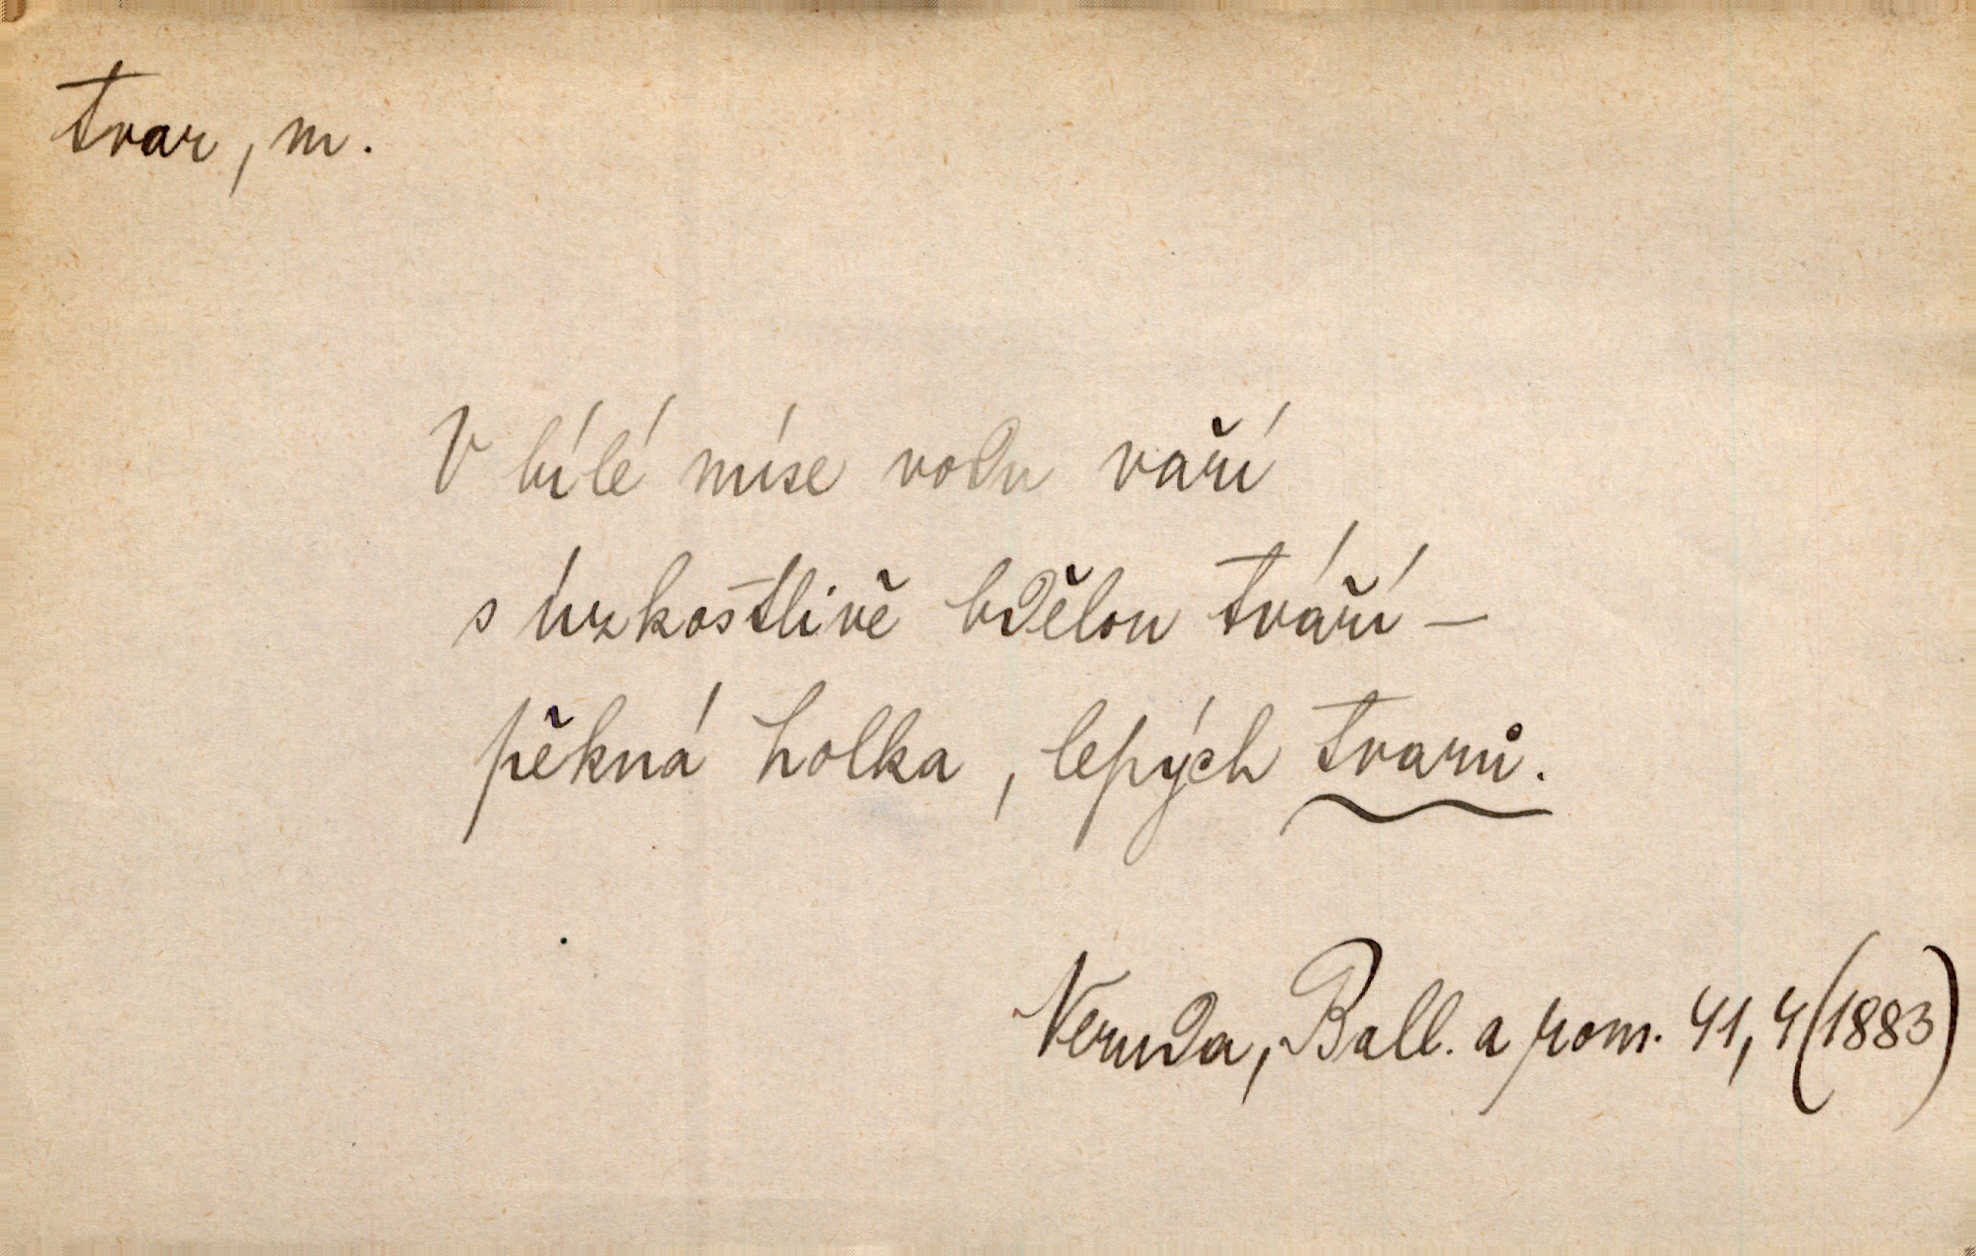 tvar, m.
V bílé míse vodu vaří
s úzkostlivě bdělou tváří —
pěkná holka, lepých tvarů.
Neruda, Ball. a rom. 41, 4 (1883)